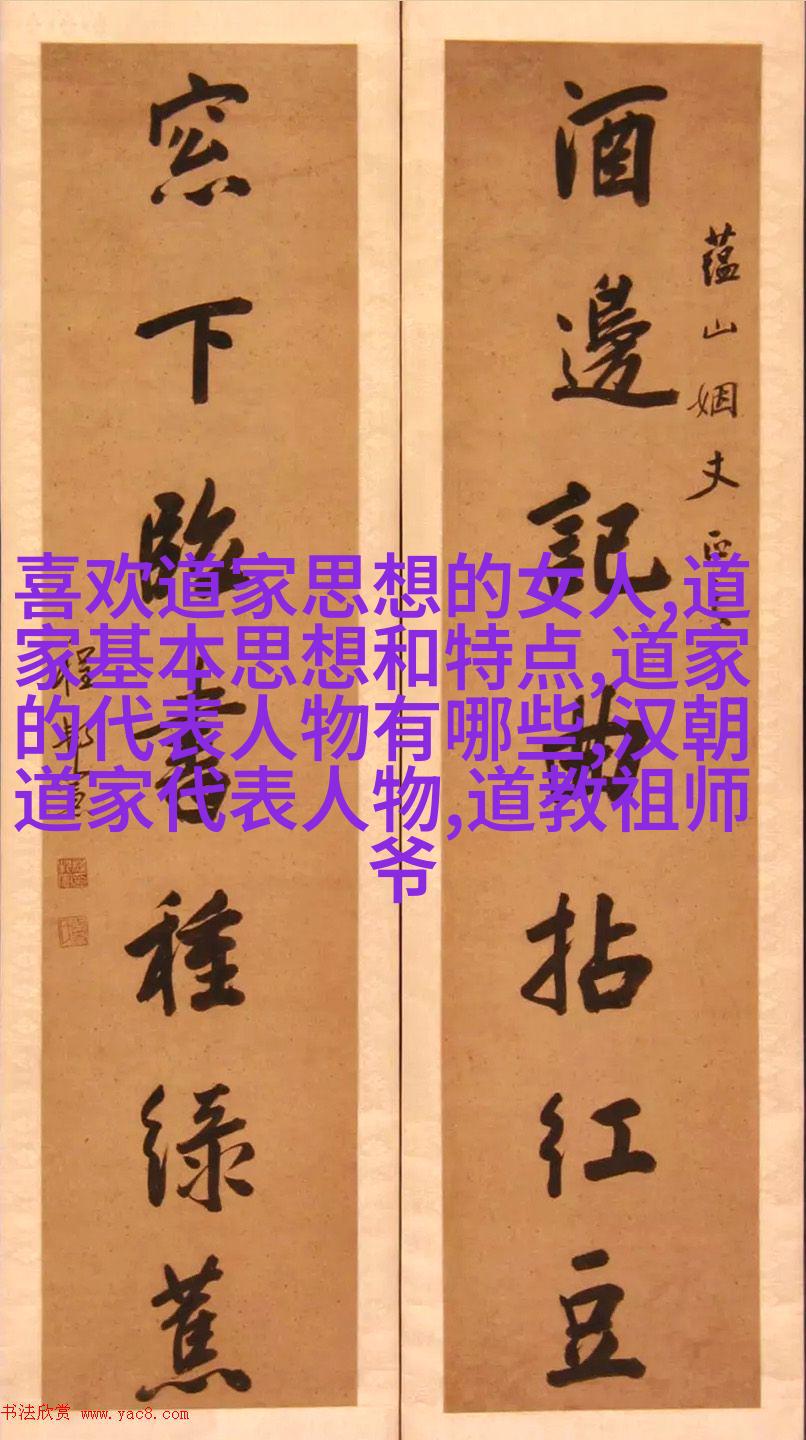 酒邊記曲拈紅豆
蘊山姻丈
窓下臨書種緑蕉
程
喜欢道家思想的女人,道
家基本思想和特点,道家
的代表人物有哪些,汉朝
道家代表人物,道教祖师
爷
书法欣赏 www.yac8.com